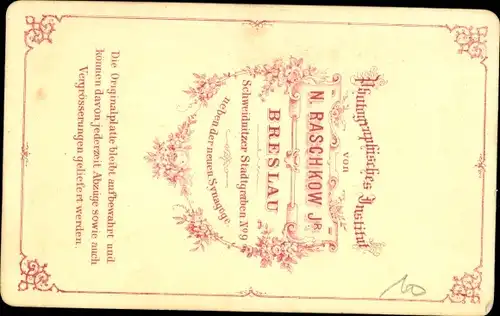 Photographisches Institut
von
N. RASCHKOW JR.
BRESLAU
Schweidnitzer Stadtgraben No 9
neben der neuen Synagoge.
Die Originalplatte bleibt aufbewahrt und
können davon jederzeit Abzüge sowie auch
Vergrösserungen geliefert werden.